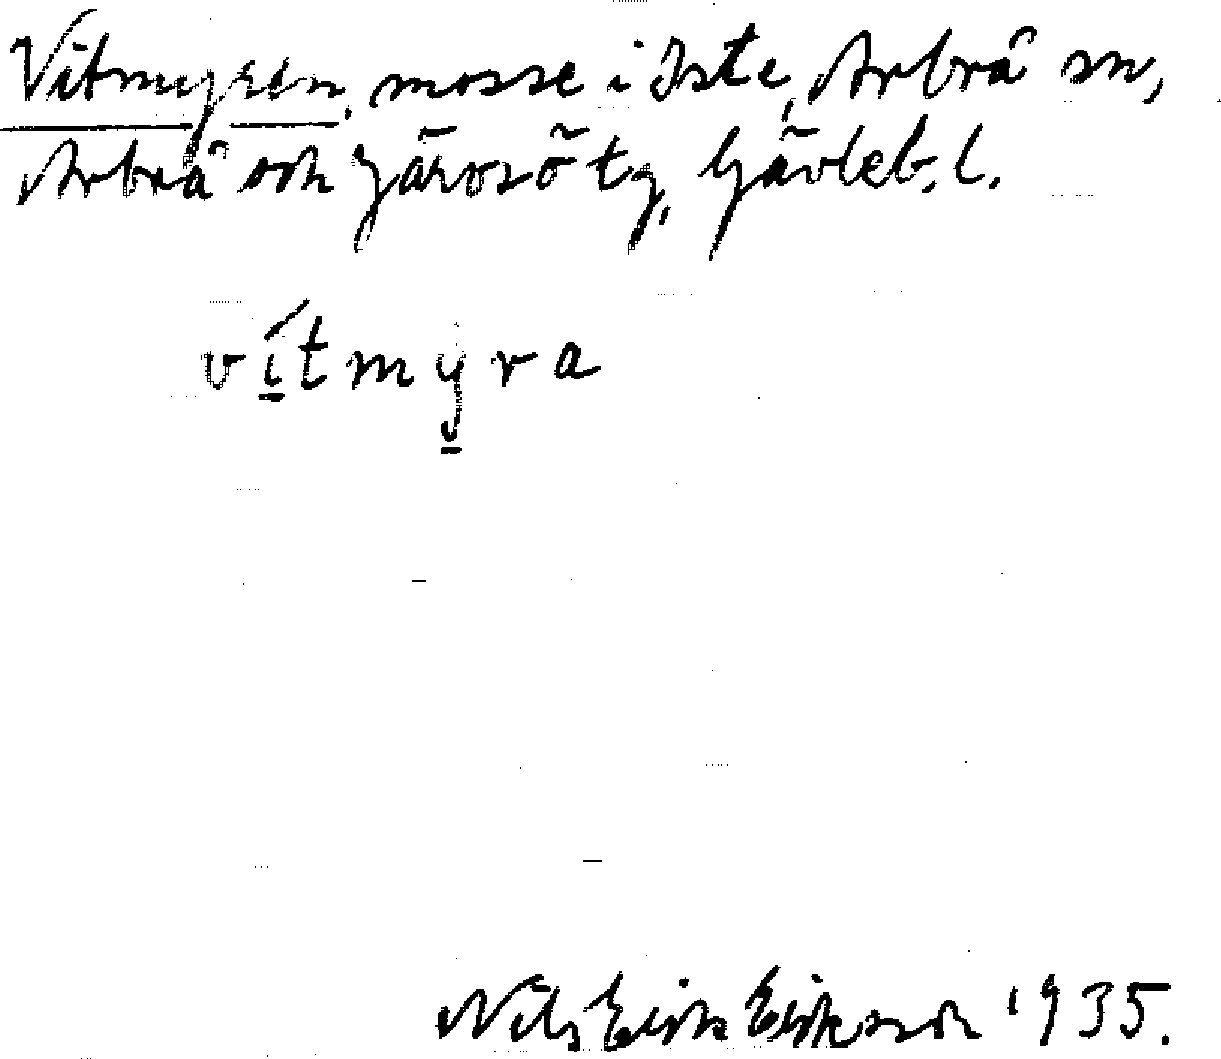 Vitmyren, mosse i Iste, Arbrå sn,
Arbrå och Järvsö tg, Gävleb. l.
vítmyra
Nils Erik Eriksson 1935.